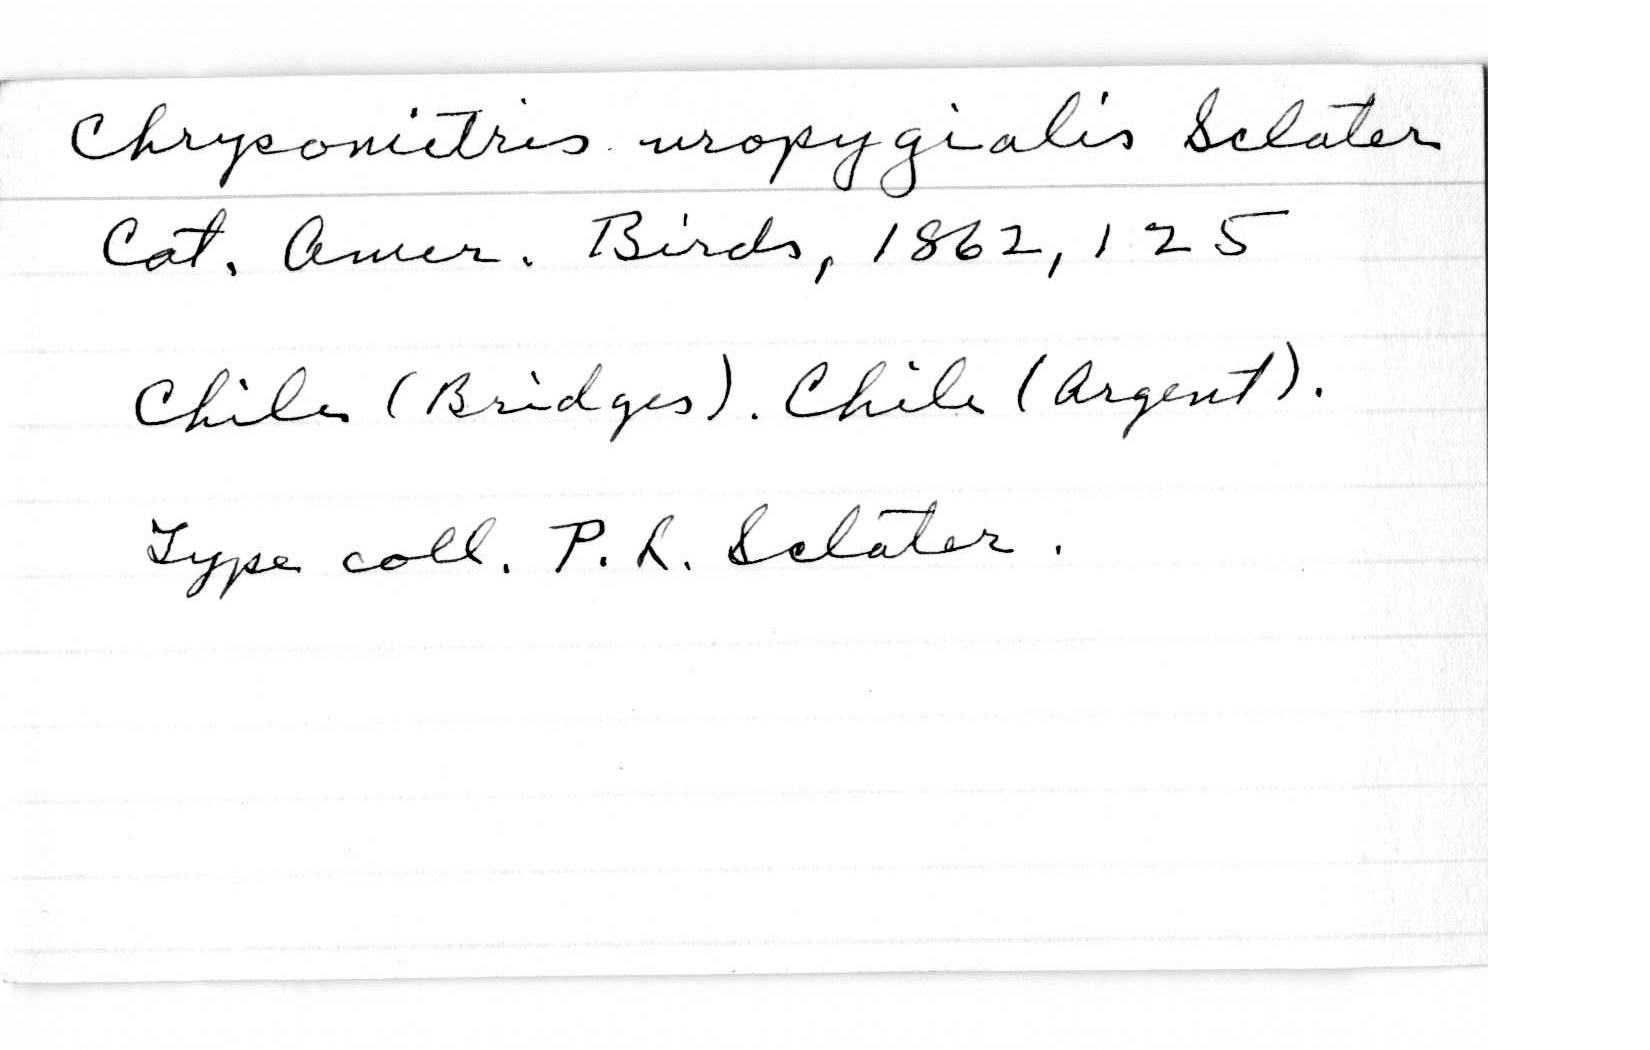 Chrysomitris uropygialis Sclater
Cat. Amer. Birds, 1862, 125
Chile (Bridges). Chile (Argent).
Type coll. P. L. Sclater.